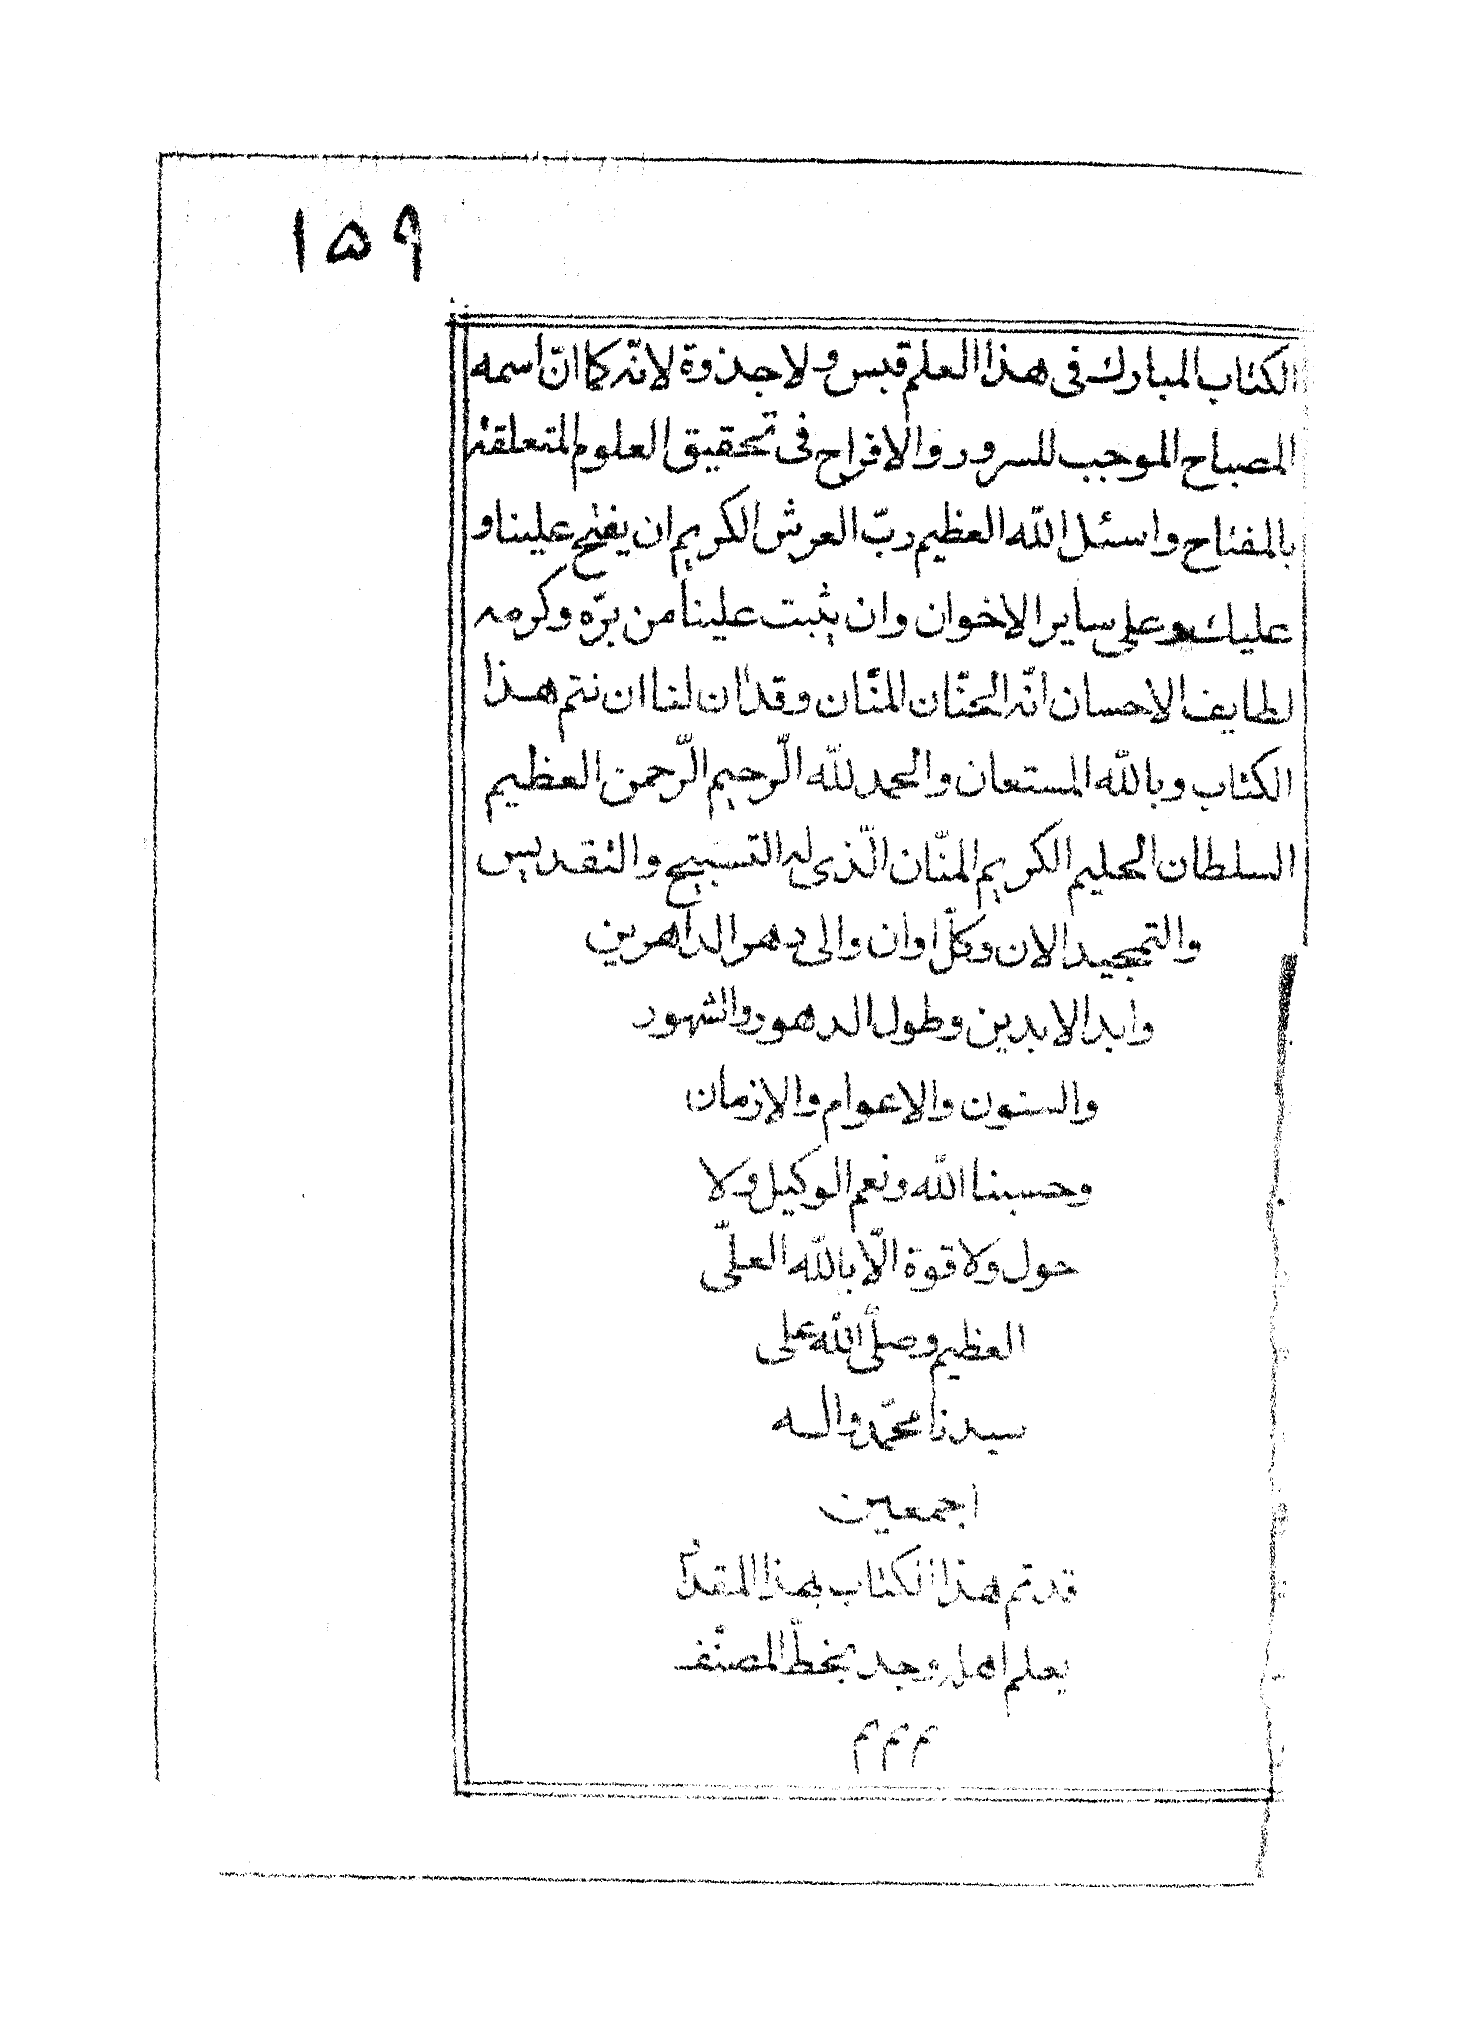 ١٥٩
الكتاب المبارك فى هذا العلم قبس ولا جذوة لانّه كما انّ اسمه
المصباح الموجب للسرور والافراح فى تحقيق العلوم المتعلقة
بالمفتاح واسئل الله العظيم ربّ العرش الكريم ان يفتح علينا و
عليك وعلى ساير الاخوان وان يثبت علينا من برّه وكرمه
لطايف الاحسان انّه الحنّان المنّان وقد ان لنا ان نتم هذا
الكتاب وبالله المستعان والحمد لله الرّحيم الرّحمن العظيم
السلطان الحليم الكريم المنّان الّذى له التسبيح والتقديس
والتمجيد الان وكلّ اوان والى دهر الداهرين
وابد الابدين وطول الدهور والشهور
والسنون والاعوام والازمان
وحسبنا الله ونعم الوكيل ولا
حول ولا قوة الّا بالله العلّى
العظيم وصلّى الله على
سيدنا محمّد واله
اجمعين
قد تم هذا الكتاب بهذا المقدا
يعلم اهل وجد بخطّ المصنّف
م م م